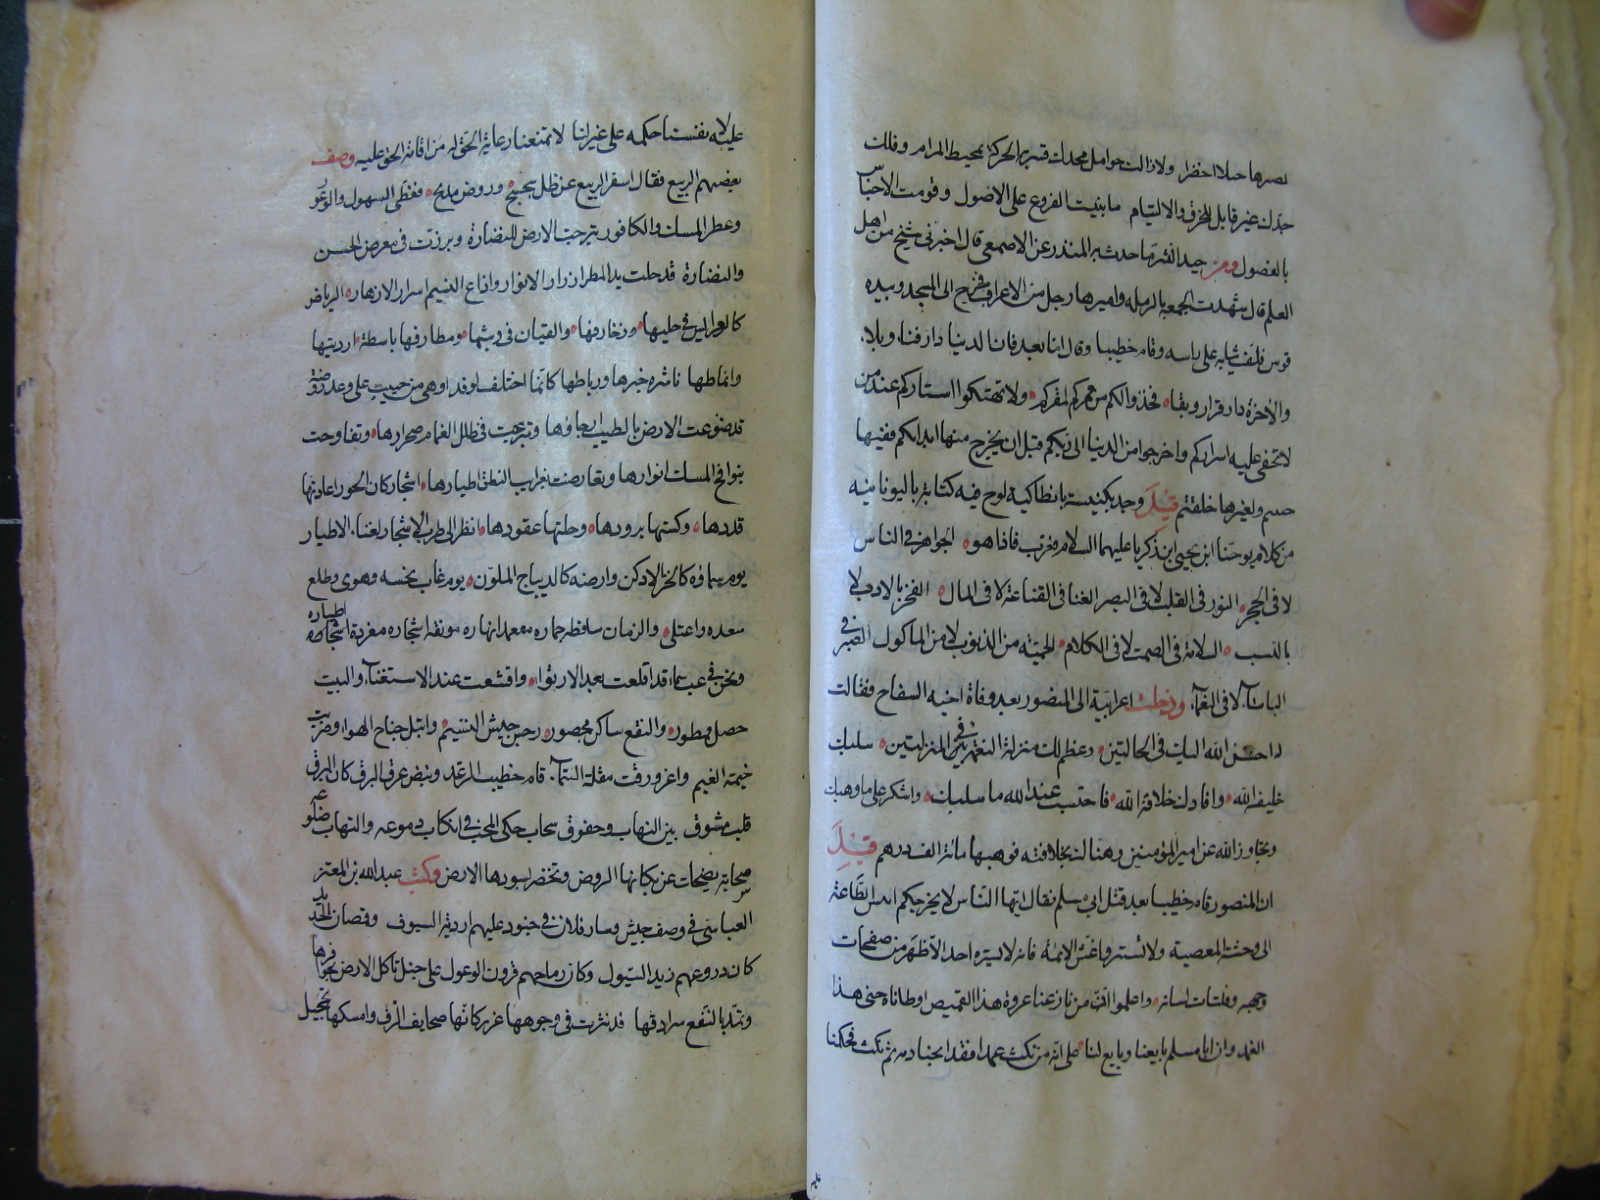 نصرها حبلا اخضرا ولا زالت حوامل محدات قسر الحركة بمحيط المرام وفللت
حدك غير قابل للخرق والالتيام ما بنيت الفروع على الاصول وقومت الاجناس
بالفصول ومن جيد النثر ما حدث المنذر عن الاصمعي قال اخبرني شيخ من اهل
العلم قال شهدت الجمعة بالرمله واميرها رجل من الاعراب فخرج الى المسجد وبيده
قوس فلف ثيابه على راسه وقام خطيبا وقال اما بعد فان الدنيا دار فناء وبلاء
والاخرة دار قرار وبقاء فخذوا لكم من ممركم لمقركم ولا تهتكوا استاركم عند من
لا تخفى عليه اسراركم واخرجوا من الدنيا الى ربكم قبل ان يخرج منها ابدانكم ففيها
حييتم ولغيرها خلقتم قيل وجد بكنيسة بانطاكية لوح فيه كتابة باليونانيه
من كلام يوحنا ابن يحيى ابن زكريا عليهما السلام فعرب فاذا هو الجواهر في الناس
لا في الحجر النور في القلب لا في البصر الغنا في القناعة لا في المال الفخر بالادب لا
بالنسب السلامة في الصمت لا في الكلام الحمية من الذنوب لا من الماكول الصبر في
الباساء لا في النعماء ودخلت اعرابية الى المنصور بعد وفاة اخيه السفاح فقالت
احسن الله اليك في الحالتين وعظم لك منزلة النعمة في المنزلتين سلبك
خليفة الله وافادك خلافة الله فاحتسب عند الله ما سلبك واشكر على ما وهبك
وتجاوز الله عن امير المؤمنين وهنا لك بخلافته فوهبها مائة الف درهم قيل
ان المنصور قام خطيبا بعد قتل ابي مسلم فقال ايها الناس لا يخرجكم انس الطاعة
الى وحشة المعصية ولا تستروا غش الائمة فانه لا يستره احد الا ظهر من صفحات
وجهه وفلتات لسانه واعلموا ان من نازعنا عروة هذا القميص اوطاناه خبي هذا
الغمد وان ابا مسلم بايعنا وبايع لنا على انه من نكث عهدا فقد ابحنا دمه ثم نكث فحكمنا
عليه لانفسنا حكمه على غيرنا لنا لا تمنعنا رعاية الحق له من اقامة الحق عليه وصف
بعضهم الربيع فقال اسفر الربيع عن ظل سجسج وروض مدبج فغطى السهول والوعور
وعطر المسك والكافور تبرجت الارض للنضارة وبرزت في معرض الحسن
والنضارة قد حلت يد المطر ازرار الانوار واذاع النسيم اسرار الازهار الرياض
كالعرايس في حليها وزخارفها والقيان في وشيها ومطارفها باسطة ارديتها
وانماطها ناشره حبرها ورياطها كانما احتفلت لوفد او هي من حبيب على وعد روضة
قد تضوعت الارض بالطيب ارجاؤها وتبرجت في ظلل الغمام صحراوها وتفاوحت
بنوافح المسك انوارها وتعارضت بغرايب النطق اطيارها اشجار كان الحور اعارتها
قدودها وكستها برودها وحلتها عقودها انظر الى طرب الاشجار لغناء الاطيار
يوم سماؤه كالخز الادكن وارضه كالديباج الملون يوم غاب نحسه وهوى وطلع
سعده واعتلى والزمان ساقطة جماره مفعمة انهاره مونقة اشجاره مغردة اطياره
ونحن في غب سماء قد اقلعت بعد الارتواء واقشعت عند الاستغناء والبيت
خصل ممطور والنقع ساكن محصور رحبن جيش النسيم وابتل جناح الهواء وضربت
خيمة الغيم واغرورقت مقلة السماء قام خطيب الرعد ونبض عرق البرق كان البرق
قلب مشوق بين التهاب وخفوق سحاب حكى المحب في انسكاب دموعه والتهاب ضلوعه
سحابة يضحك عن بكائها الروض وتخضر لسوادها الارض وكتب عبد الله بن المعتز
العباسي في وصف جيش وسار فلان في جنود عليهم اردية السيوف وقمصان الحديد
كان دروعهم زبد السيول وكان رماحهم قرون الوعول على خيل تاكل الارض بحوافرها
وتمد بالنقع سرادقها قد نثرت في وجوهها غرر كانها صحايف الرق وامسكها تحجيل